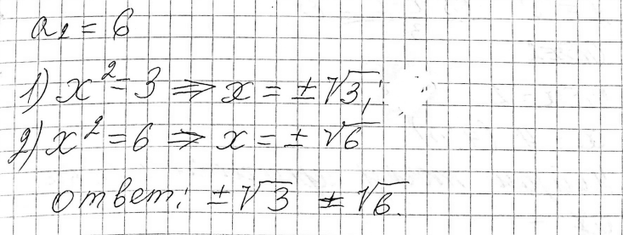 a₂ = 6
1) x² = 3 ⇒ x = ±√3;
2) x² = 6 ⇒ x = ± √6
ответ: ±√3 ±√6.